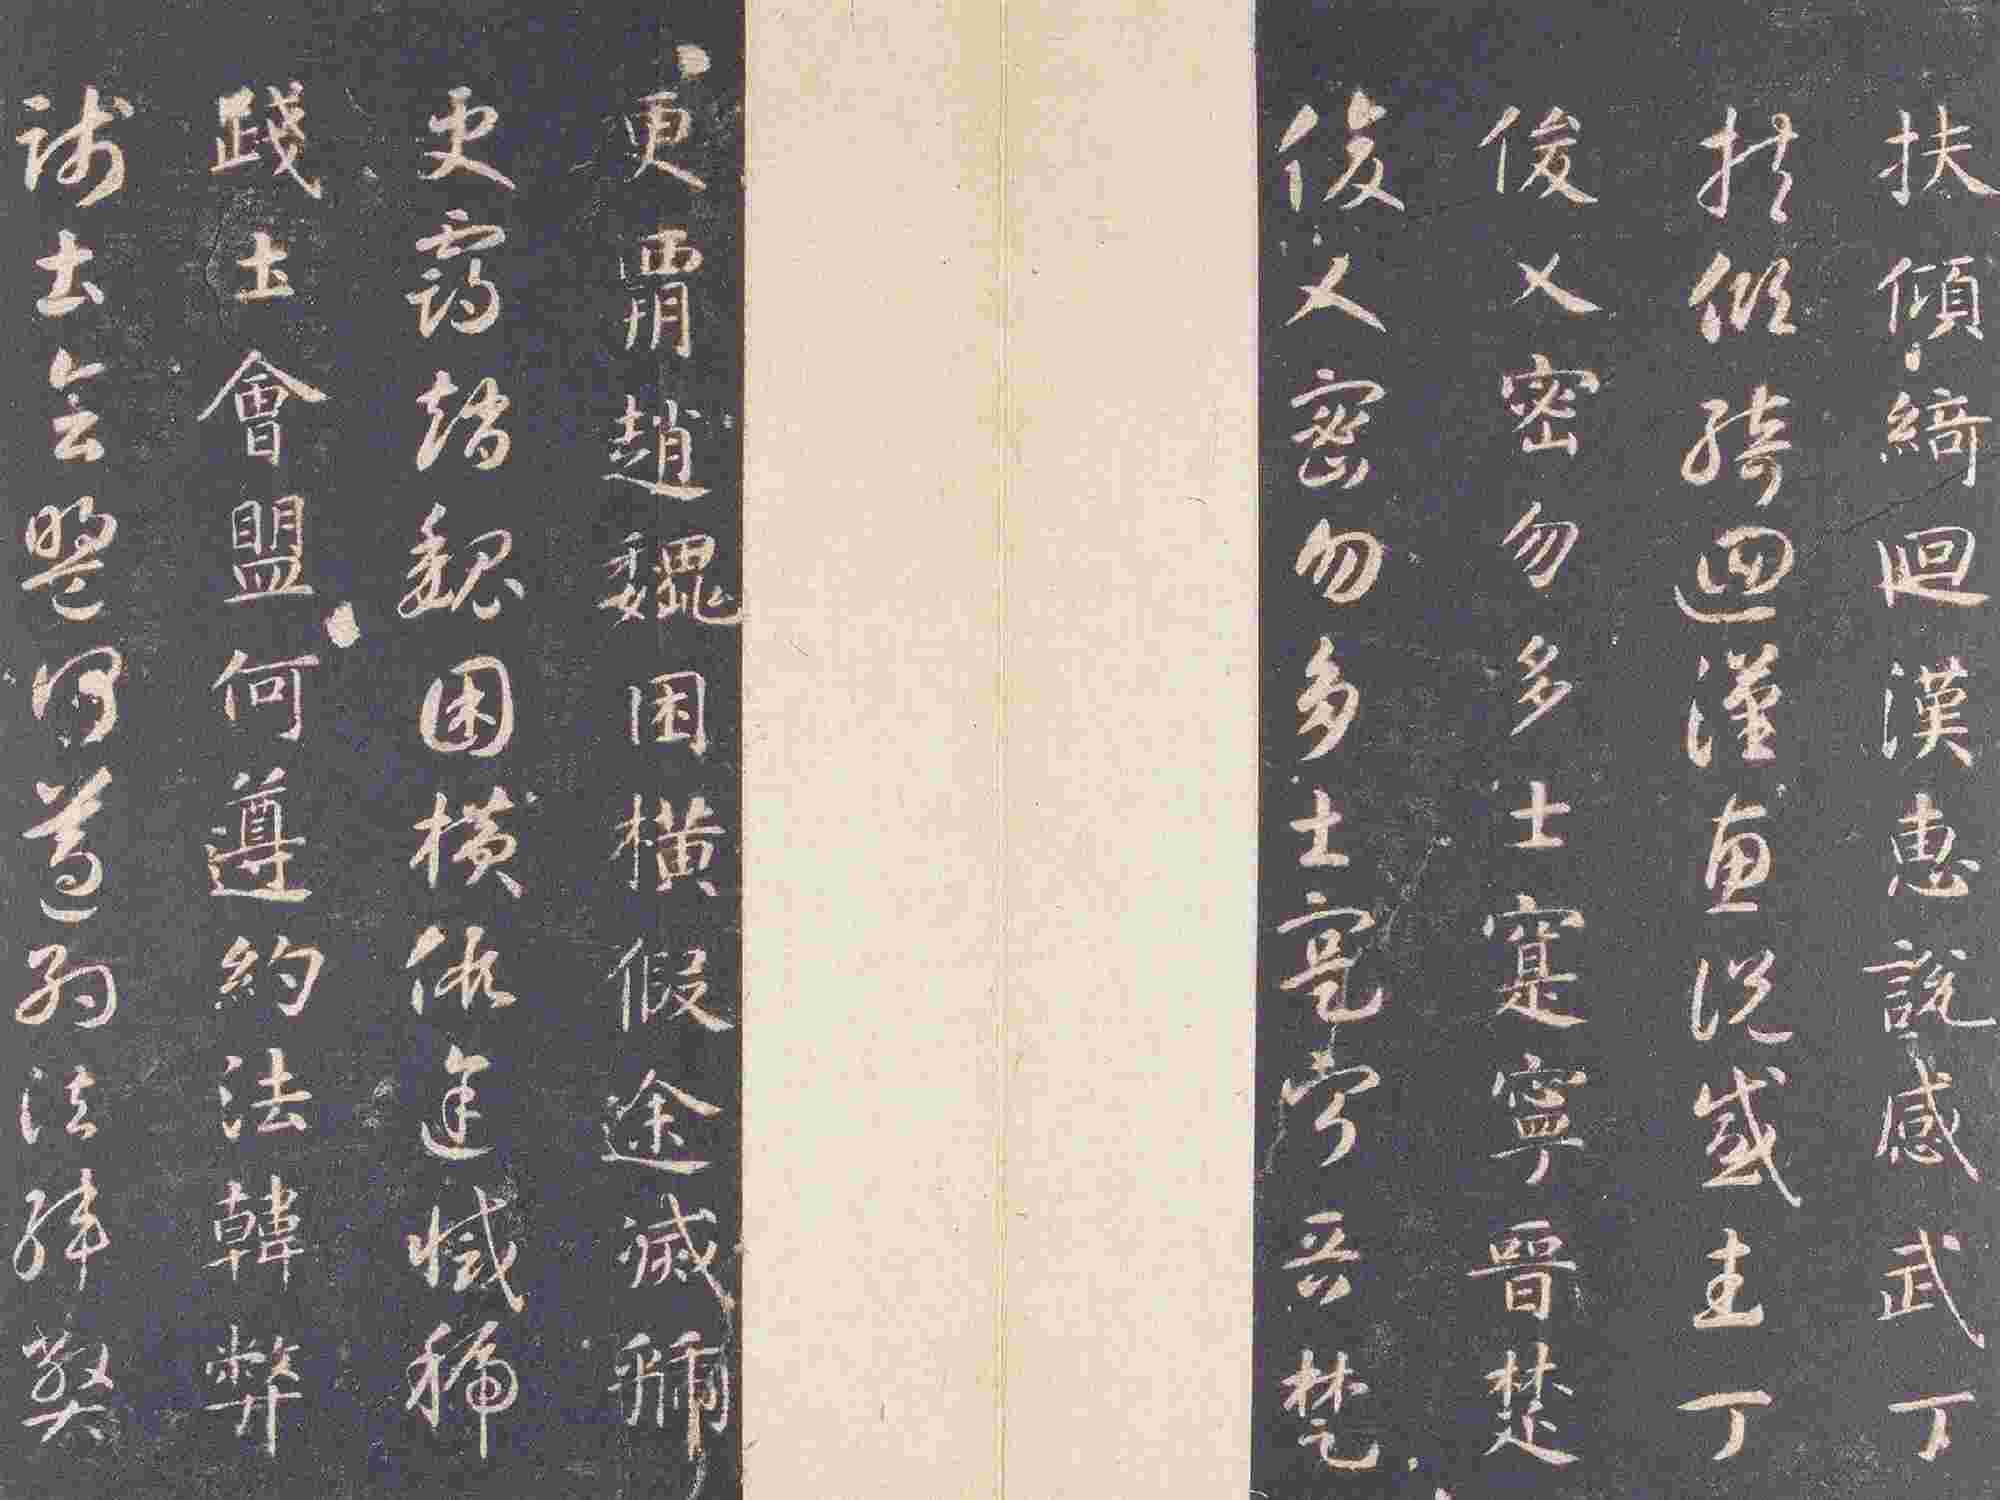 扶傾綺迴漢惠說感武丁
扶傾綺迴漢惠說感武丁
俊乂密勿多士寔寧晉楚
俊乂密勿多士寔寧晉楚
更覇趙魏困橫假途滅虢
更覇趙魏困橫假途滅虢
踐土會盟何遵約法韓弊
踐土會盟何遵約法韓弊